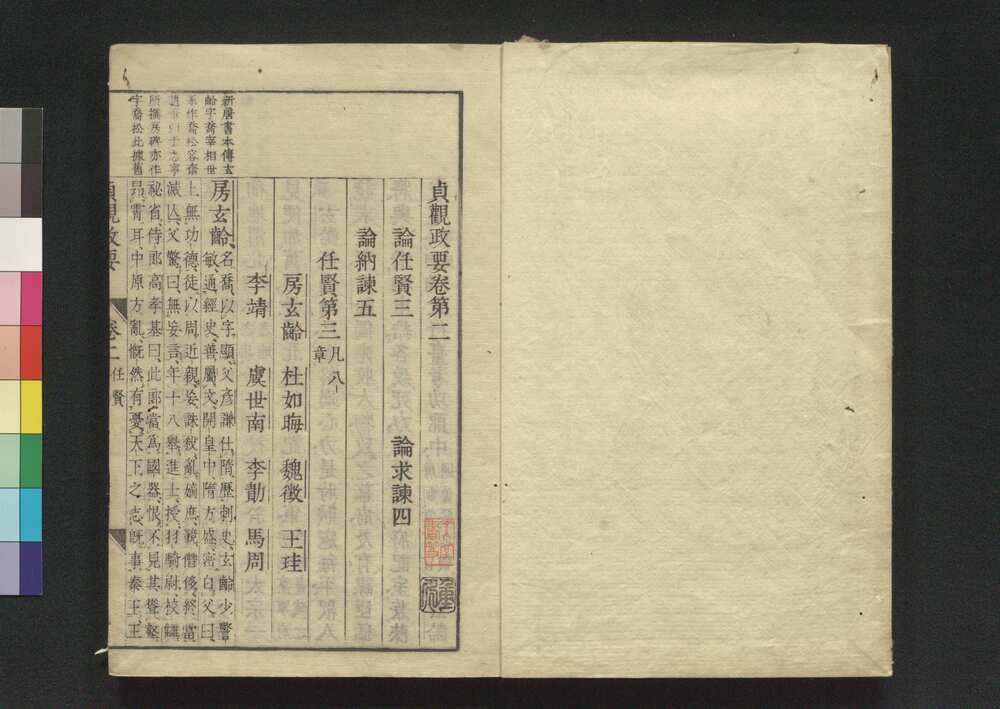 貞觀政要卷第二
論任賢三 論求諫四
論納諫五
任賢第三 凡八章
房玄齡 杜如晦 魏徵 王珪
李靖 虞世南 李勣 馬周
新唐書本傳玄
齡字喬宰相世
系作喬松容齋
所撰房碑亦作
字喬松此據舊
房玄齡、名喬、以字顯、父彥謙、仕隋、歷刺史、玄齡少警
敏、通經史、善屬文、開皇中、隋方盛、密白父曰、
上無功德、徒以周近親、妄誅殺、亂嫡庶、競僭侈、終當
滅亾、父驚曰、無妄言、年十八、舉進士、授羽騎尉、校讎
祕省、侍郎高孝基曰、此郎當爲國器、恨不見其聳壑
昂霄耳、中原方亂、慨然有憂天下之志、旣事秦王、王
貞觀政要 卷二 任賢